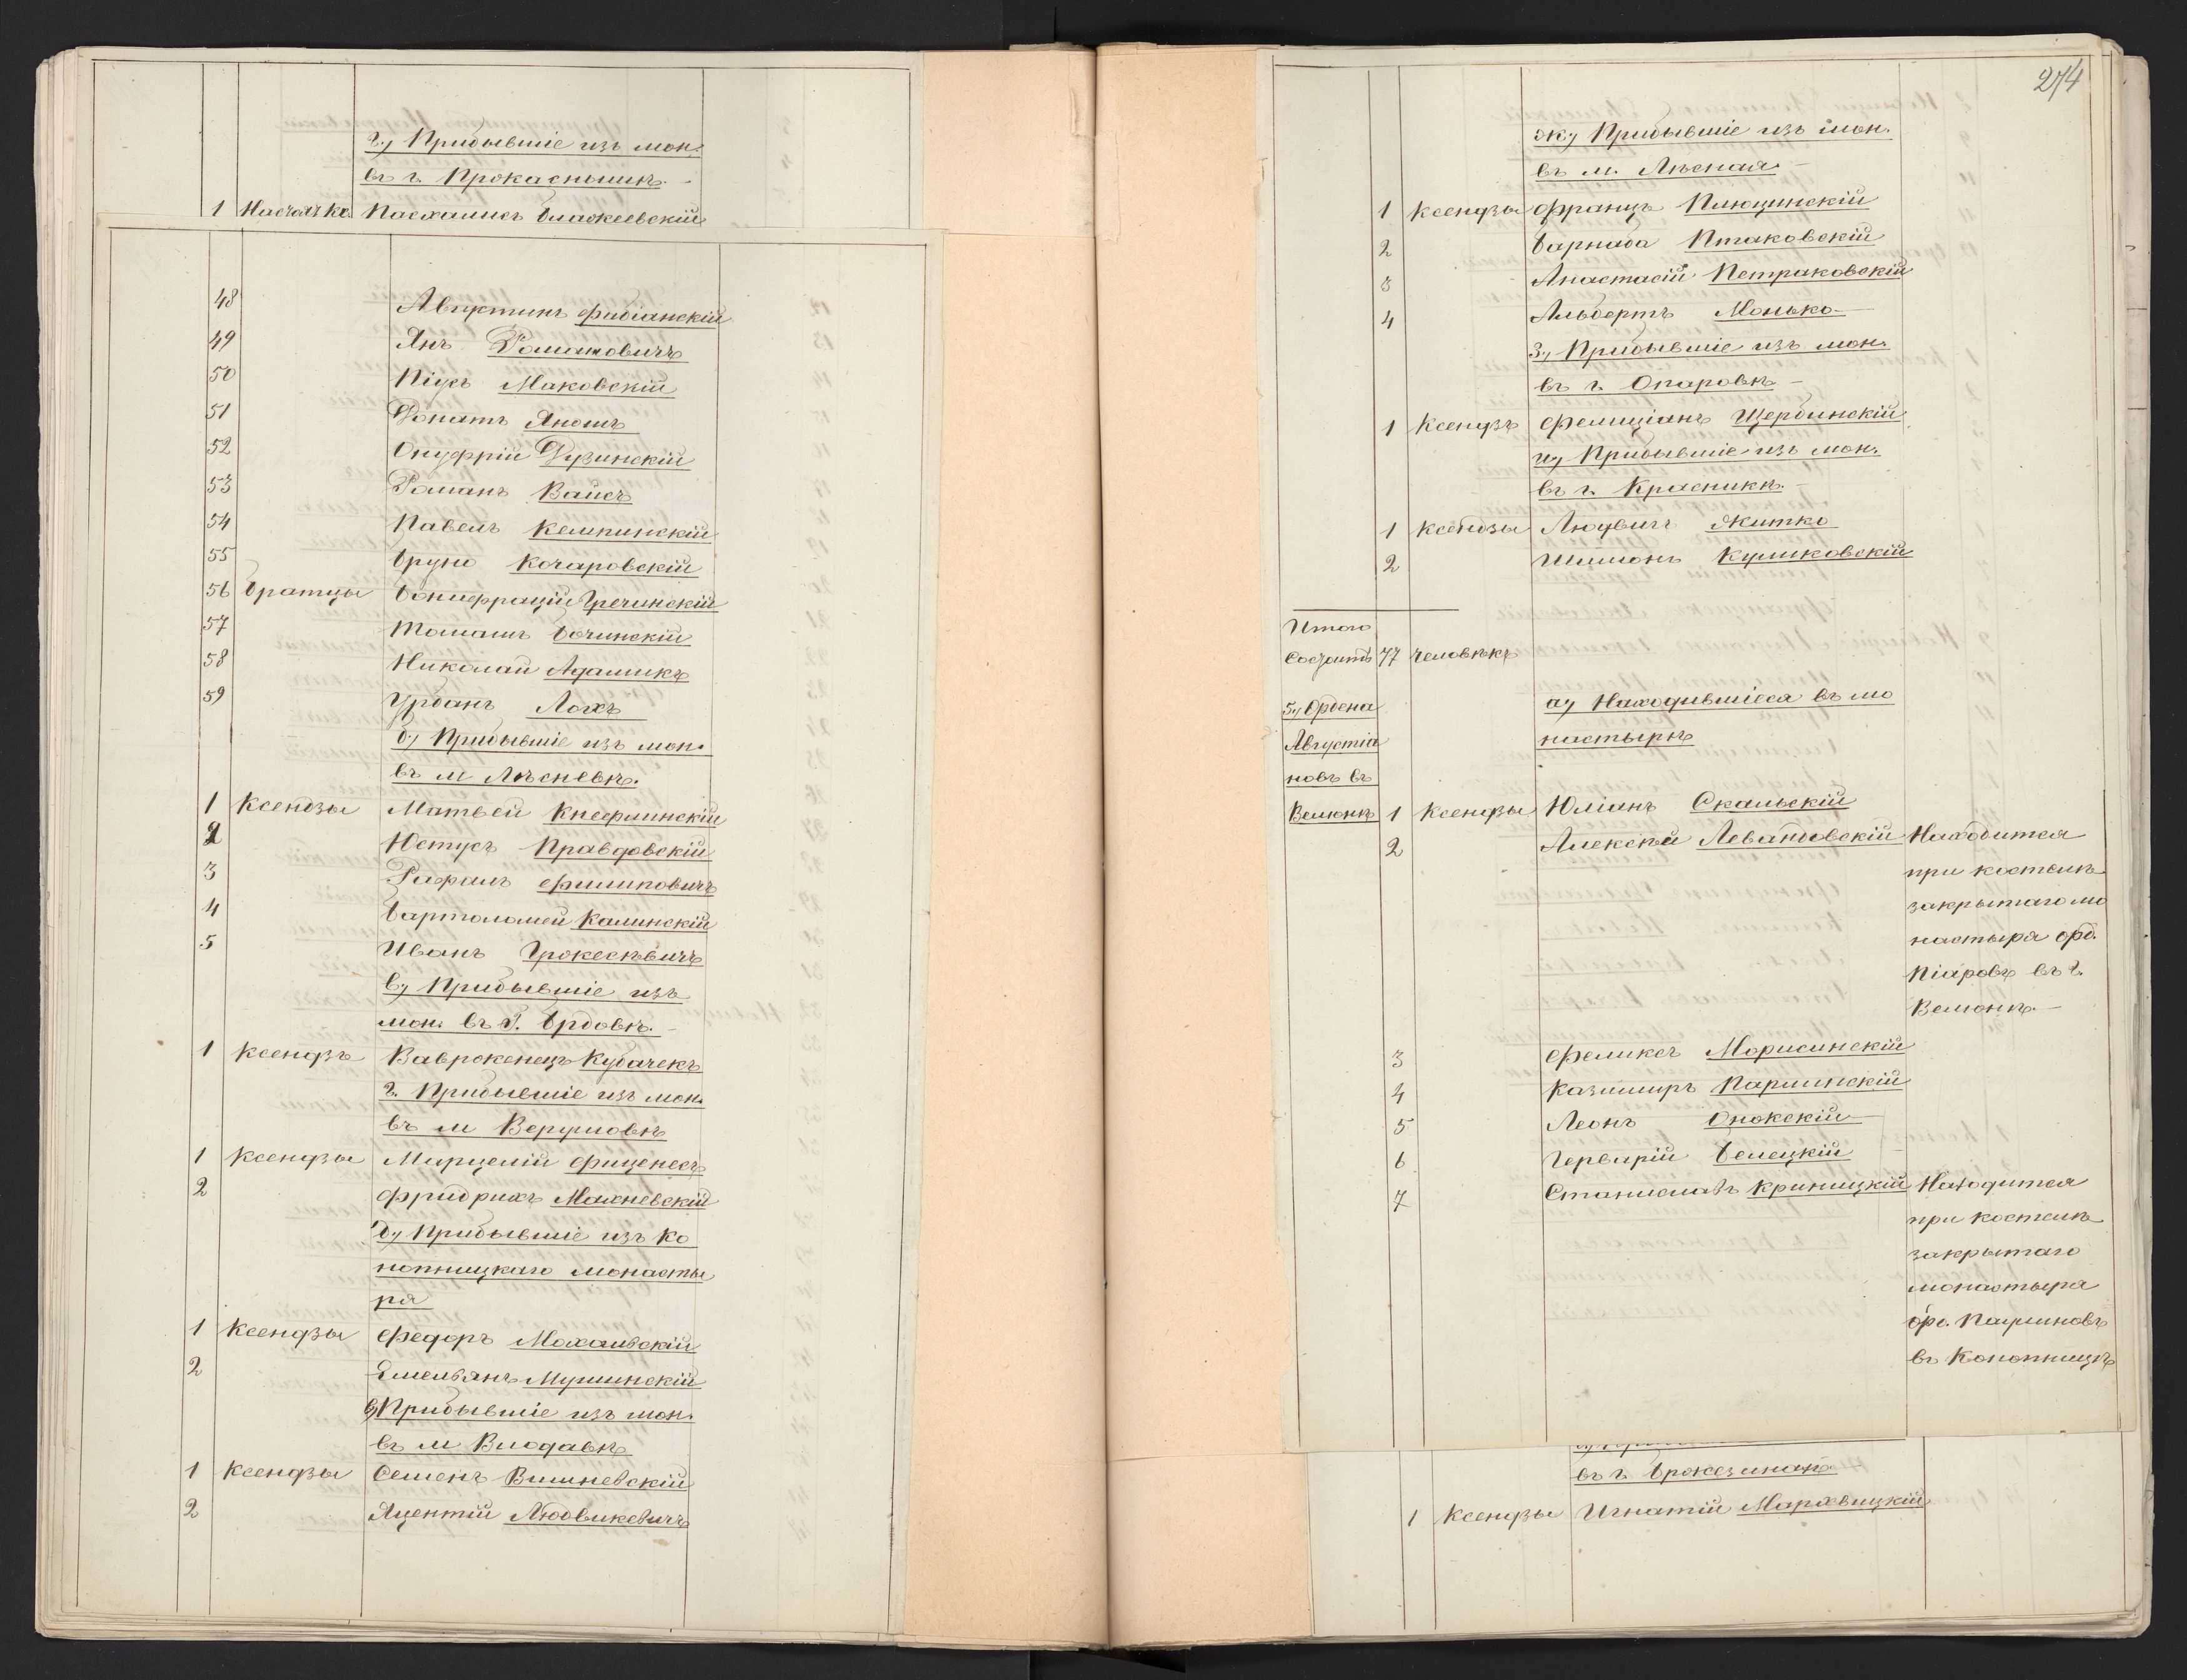 г., Прибывшіе изъ мон.
въ г.
1 Пасхалисъ Блажеевскій
48 Августинъ Фибіанскій
49 Янъ
50 Піусъ Маковскій
51 Донатъ Яношъ
52 Онуфрій Дузинскій
53 Романъ Вайсъ
54 Павелъ Кемпинскій
55 Бруно Кочаровскій
56 Братцы Бонифрацій Гречинскій
57 Томашъ Бочинскій
58 Николай Адамикъ
59 Урбанъ Лохъ
б., Прибывшіе изъ мон.
въ м Лѣсневѣ.
1 Ксендзы Матвей Кнефлинскій
2 Юстусъ Правдовскій
3 Рафалъ Филиповичъ
4 Бартоломей Калинскій
5 Иванъ
в., Прибывшіе изъ
мон. въ г.
1 Ксендзъ Кубачекъ
г. Прибывшіе изъ мон.
въ м
1 Ксендзы Марцелій
2 Фридрихъ Махневскій
д., Прибывшіе изъ Ко
нопницкаго монасты
ря
1 Ксендзы Федоръ
2 Емельянъ Мушинскій
Прибывшіе изъ мон.
въ м Влодавѣ
1 Ксендзы Семенъ Вишневскій
2 Яцентій Людвикевичъ
274
ж., Прибывшіе изъ мон.
въ м. Лѣсная
1 Ксендзы Францъ Плюцинскій
2 Барнаба Птаковскій
3 Анастасій Петраковскій
4 Альбертъ Монько
з., Прибывшіе изъ мон.
въ г. Опаровѣ
1 Ксендзъ Фелиціанъ Щербинскій
и., Прибывшіе изъ мон.
въ г. Красникѣ.
1 Ксендзы Людвигъ Житко
2 Шимонъ Куликовскій
Итого
Состоитъ 77 человѣкъ
5., Ордена а., Находившіеся въ мо
Августіа настырѣ
новъ въ
Велюнѣ 1 Ксендзы Юліанъ Скальскій
2 Алексѣй Левандовскій Находится
при костелѣ
закрытаго мо
настыря орд.
Піаровъ въ г.
Велюнѣ.
3 Феликсъ Морисинскій
4 Казимиръ Парлинскій
5 Леонъ
6 Герварій Белецкій
7 Станиславъ Криницкій Находится
при костелѣ
закрытаго
монастыря
орд. Паулиновъ
въ Конопницѣ
въ г.
1 Ксендзы Игнатій